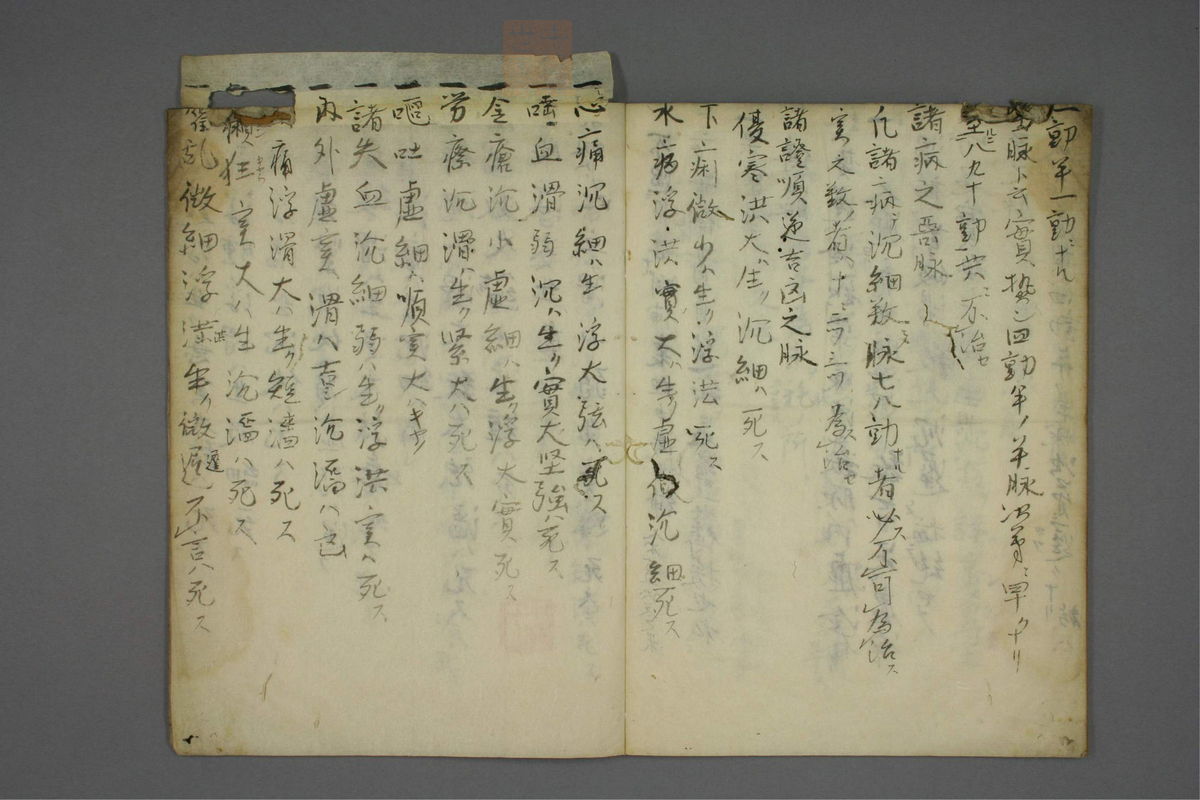 動半一動ニナル
堅脉ト云實墊シ四動半ノ半脉次第ニ早クナリ
至八九十動共ニ不治也
諸病之悪脉
凡諸病ニ沉細数脉七八動者必ス不可為治ス
実之数ノ者ハ十ニ二ツ三ツ為治也
諸證順逆吉凶之脉
傷寒洪大ハ生ク沉細ハ死ス
下痢微小ハ生ク浮洪死ス
水病浮洪實大ハ生ク虚沉細死ス
一心痛沉細ハ生浮大弦ハ死ス
一唾血滑弱沉ハ生ク實大堅強ハ死ス
一金瘡沉小虚細ハ生ク浮大實死ス
一労瘵沉濡ハ生ク緊大ハ死ス
一嘔吐虚細ハ順実大ハキヤク
一諸失血沉細弱ハ生ク浮洪実ハ死ス
一内外虚実滑ハ吉沉濇ハ凶
痛浮滑大ハ生ク短濇ハ死ス
癲狂実大ハ生沉濡ハ死ス
一霍乱微細浮洪生ク微遅不言ハ死ス